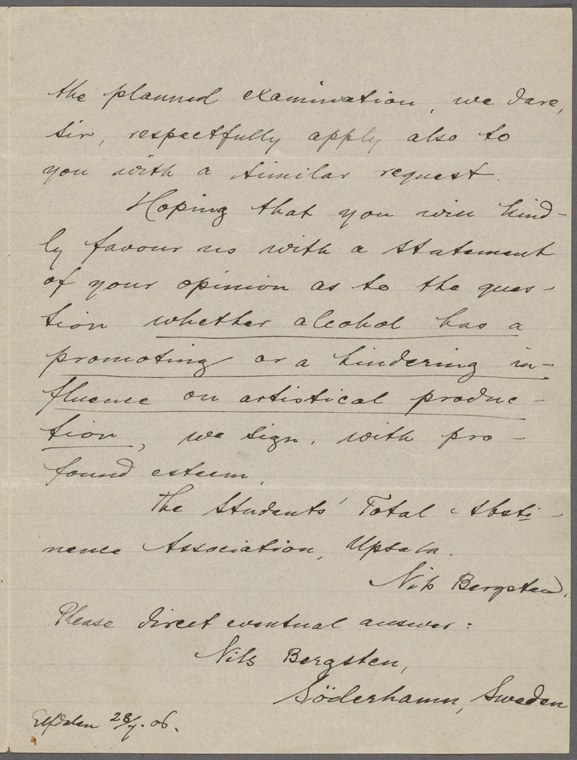 the planned examination, we dare,
sir, respectfully apply also to
you with a similar request.
Hoping that you will kind-
ly favour us with a statement
of your opinion as to the ques-
tion whether alcohol has a
promoting or a hindering in-
fluence on artistical produc-
tion, we sign, with pro-
found esteem,
The Students' Total Absti-
nence Association, Upsala.
Nils Bergsten.
Please direct eventual answer:
Nils Bergsten,
Söderhamn, Sweden
Elfdalen 28/7. 06.